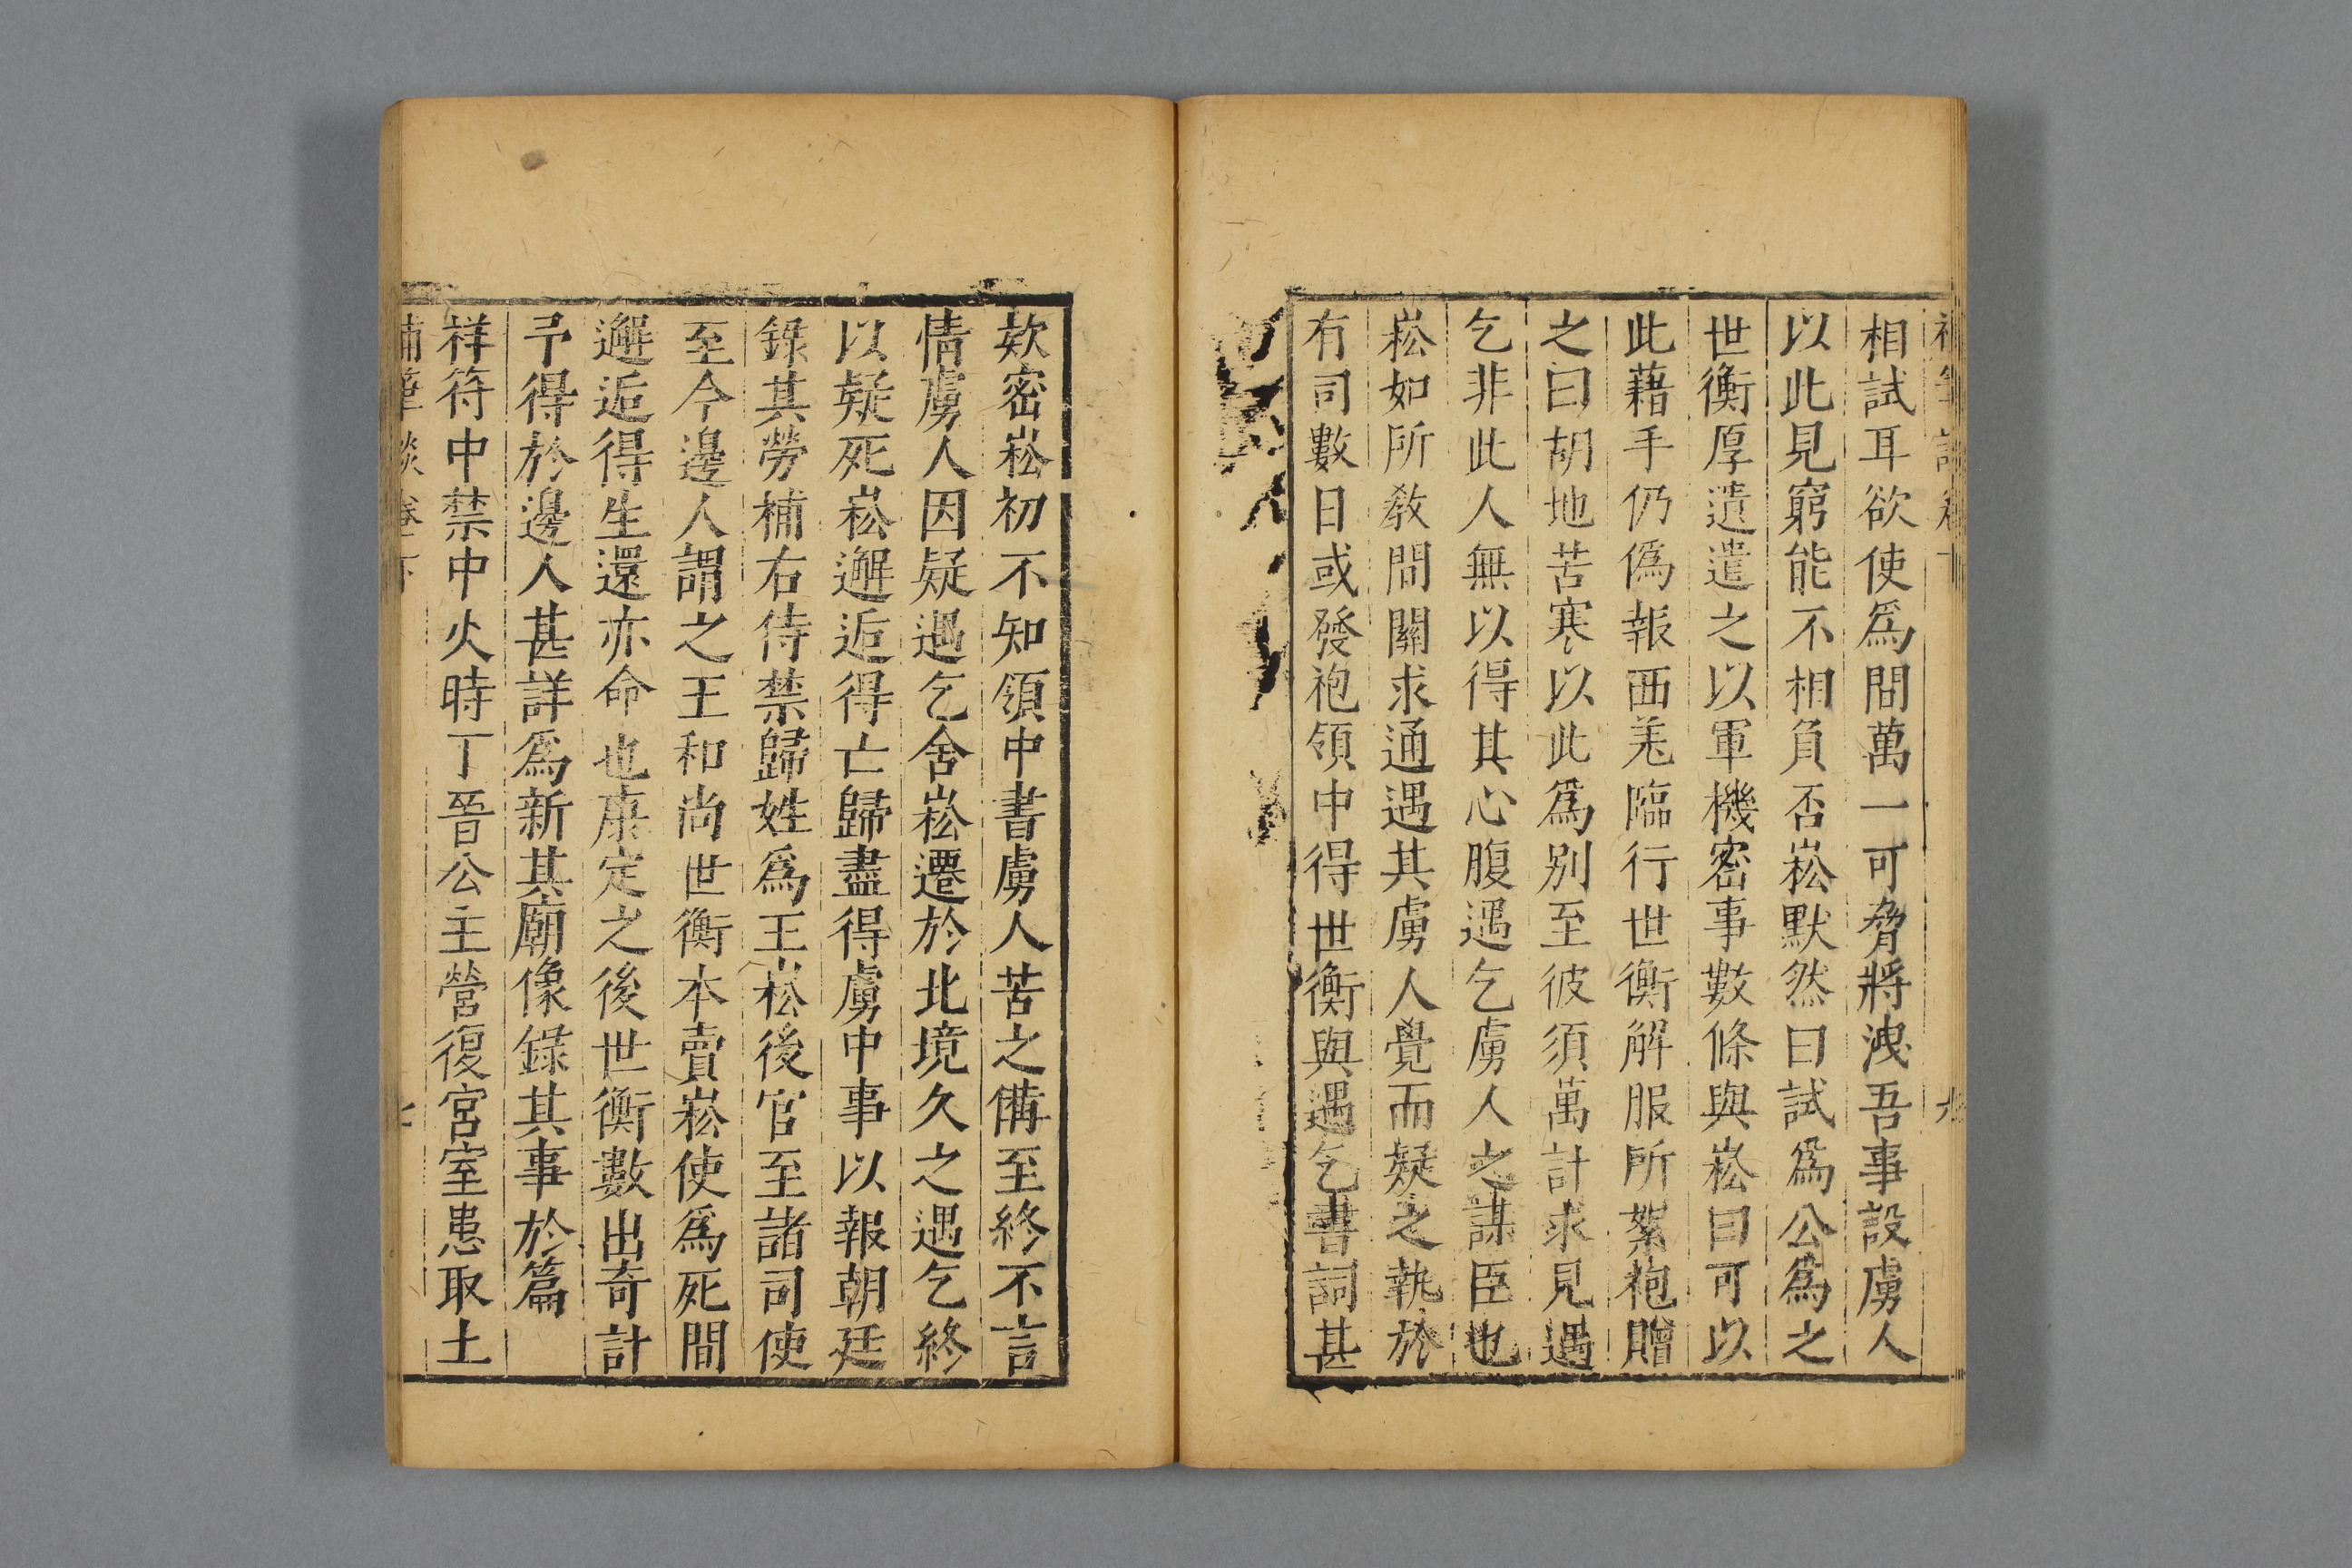 相試耳欲使爲間萬一可脅將洩吾事設虜人
以此見窮能不相負否崧默然曰試爲公爲之
世衡厚遺遣之以軍機密事數條與崧曰可以
此藉手仍僞報西羌臨行世衡解服所絮袍贈
之曰胡地苦寒以此爲别至彼須萬計求見遇
乞非此人無以得其心腹遇乞虜人之謀臣也
崧如所敎間關求通遇其虜人覺而疑之執於
有司數日或發袍領中得世衡與遇乞書詞甚
欵密崧初不知領中書虜人苦之備至終不言
情虜人因疑遇乞舍崧遷於北境久之遇乞終
以疑死崧邂逅得亡歸盡得虜中事以報朝廷
錄其勞補右侍禁歸姓爲王崧後官至諸司使
至今邊人謂之王和尚世衡本賣崧使爲死間
邂逅得生還亦命也康定之後世衡數出奇計
予得於邊人甚詳爲新其廟像錄其事於篇
祥符中禁中火時丁晉公主營復宮室患取土
補筆談卷下